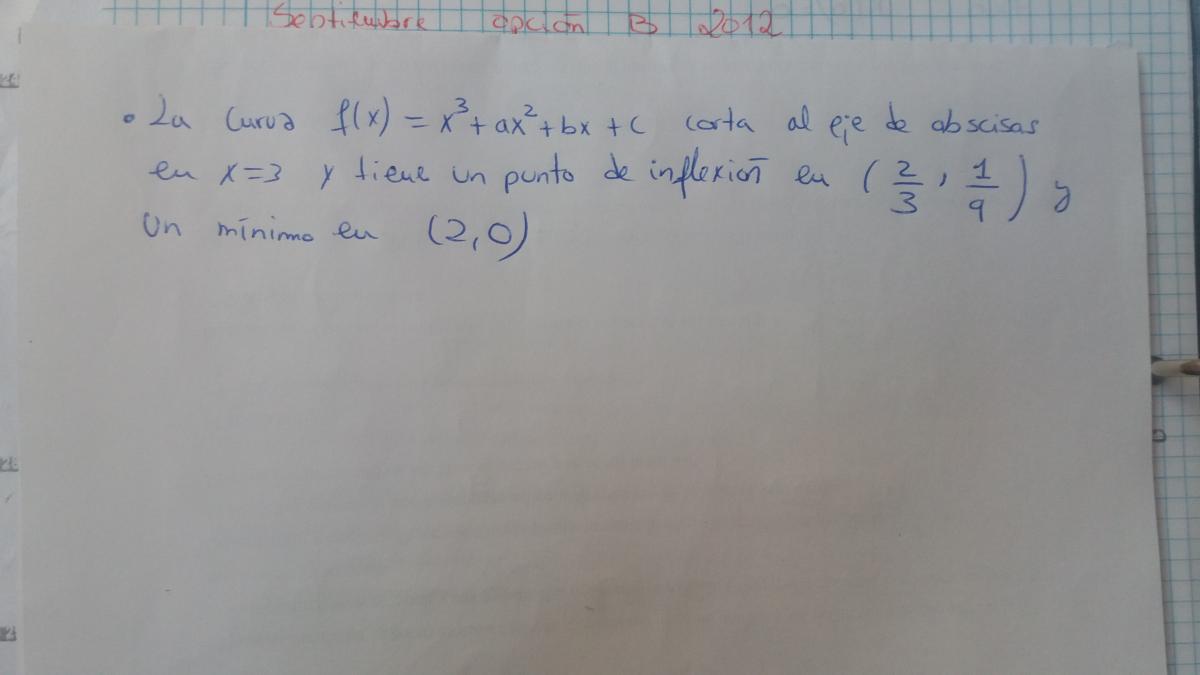 Septiembre opción B 2012
• La curva f(x) = x³ + ax² + bx + c corta al eje de abscisas
en x=3 y tiene un punto de inflexión en (2/3, 1/9) y
Un mínimo en (2,0)